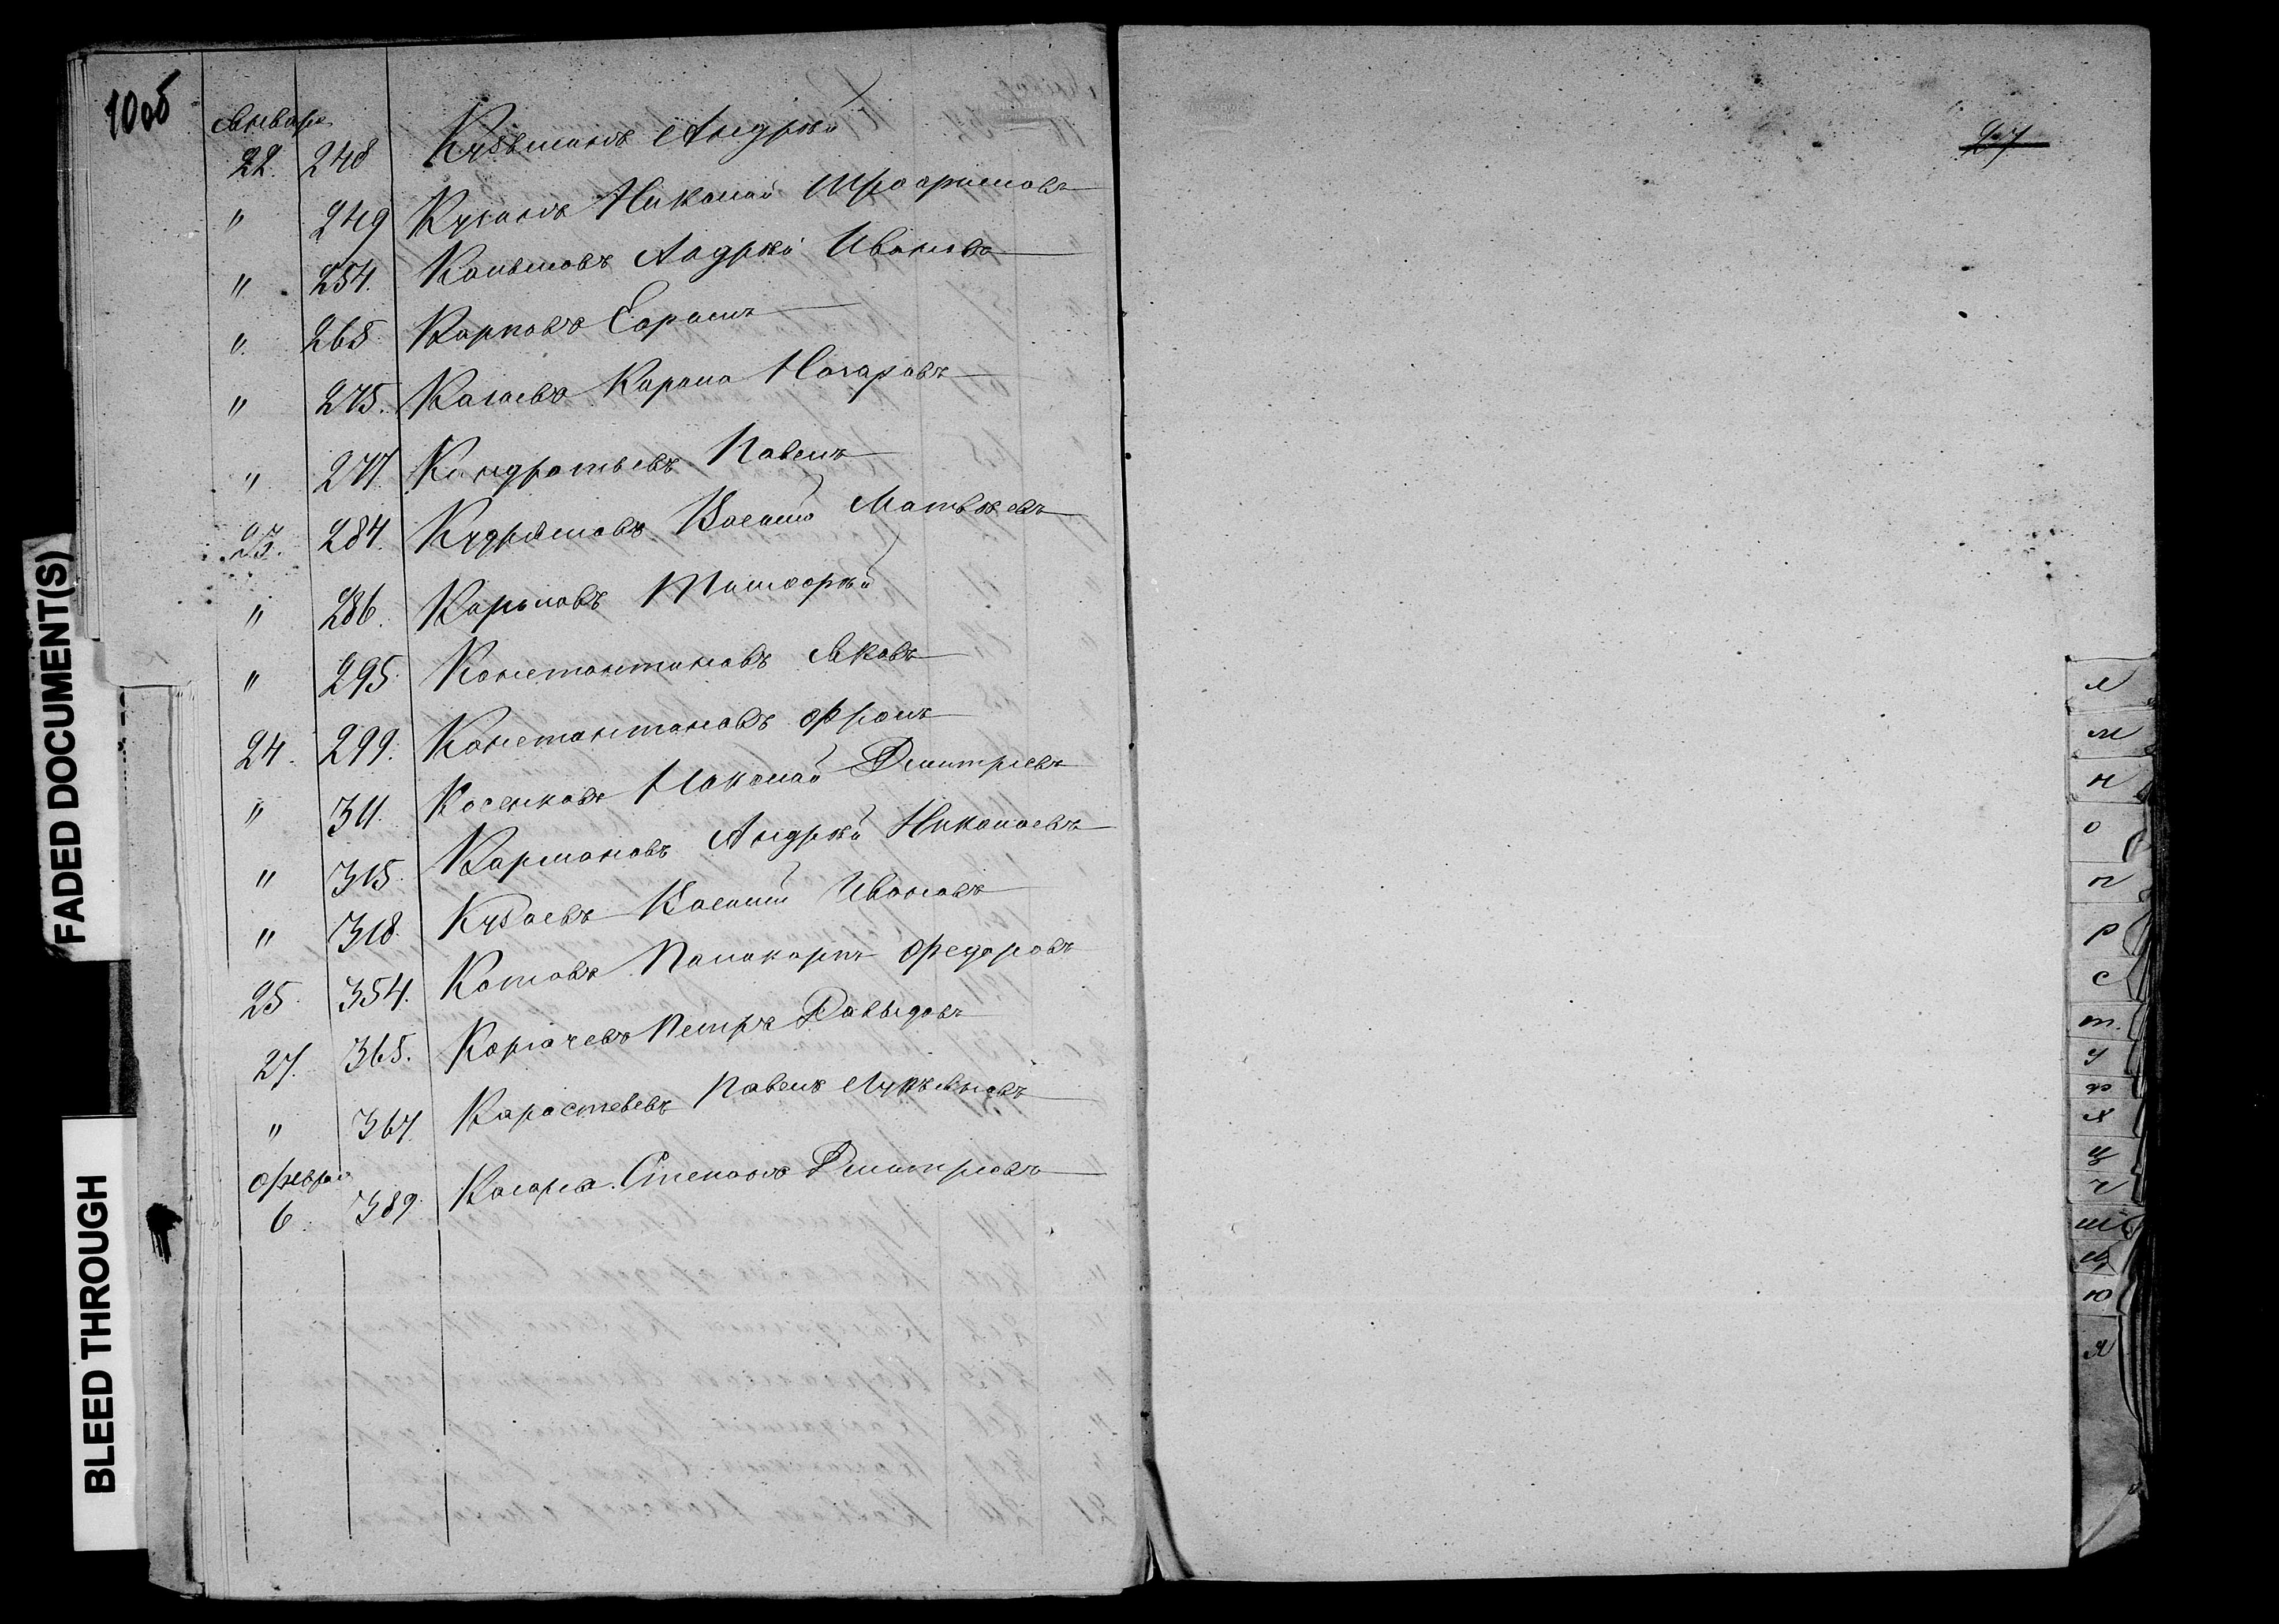 10об
Января
22. 248 Кузьминъ Андрей
" 249 Кукинъ Николай
" 254. Копыловъ Андрей Ивановъ
" 265 Карповъ Герасимъ
" 275. Кагаевъ Карпъ Назаровъ
" 277. Кондратьевъ Павелъ
23. 284. Кудряшовъ Василій Матвѣевъ
" 286. Карповъ Тимофей
" 295. Константиновъ Яковъ
24. 299. Константиновъ Фролъ
" 311. Косенковъ Николай Дмитріевъ
" 315. Кармановъ Андрей Николаевъ
" 318. Кубаевъ Василій Ивановъ
25. 354. Котовъ Поликарпъ Федоровъ
27. 365. Корячевъ Петръ Давыдовъ
" 367. Коростелевъ Павелъ Лукьяновъ
Февраля
6 389. Степанъ Дмитріевъ
27
л
м
н
о
п
р
с
т.
у
ф
х
ц
ч
ш
щ
ю
я
FADED DOCUMENT(S)
BLEED THROUGH